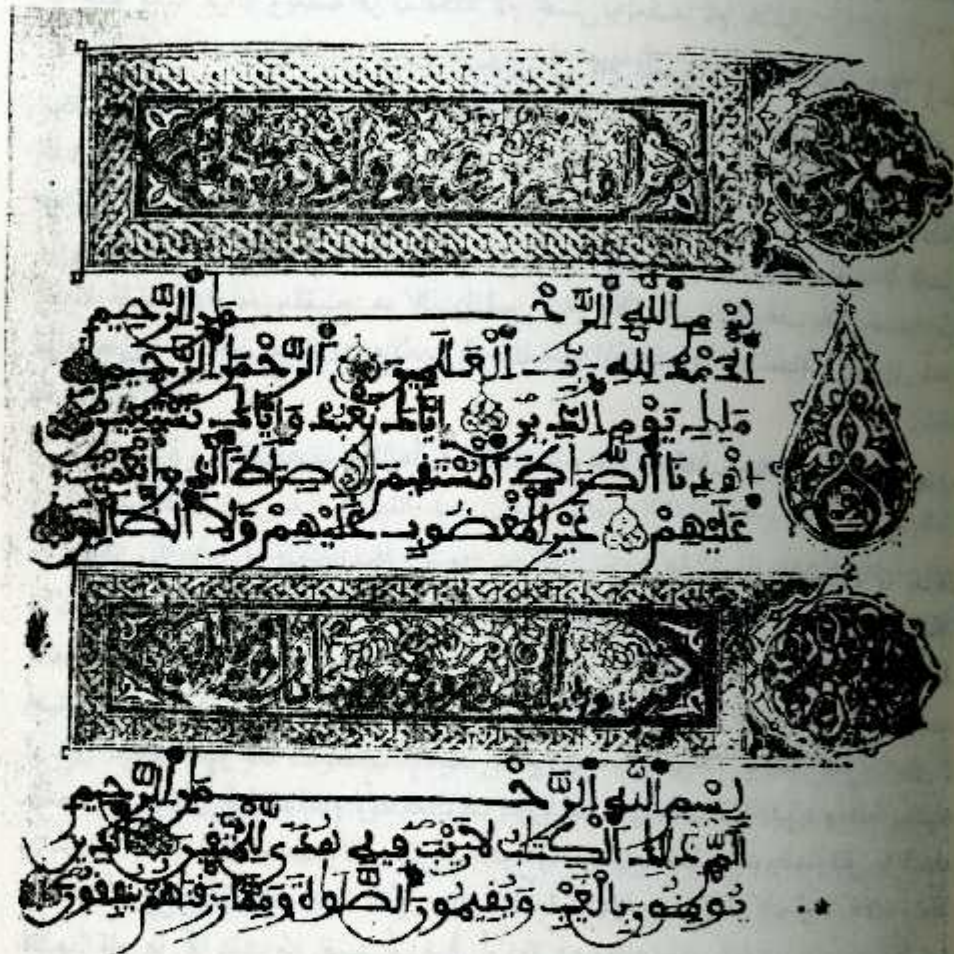 بِسْمِ اللَّهِ الرَّحْمَٰنِ الرَّحِيمِ
الْحَمْدُ لِلَّهِ رَبِّ الْعَالَمِينَ الرَّحْمَٰنِ الرَّحِيمِ
مَلِكِ يَوْمِ الدِّينِ إِيَّاكَ نَعْبُدُ وَإِيَّاكَ نَسْتَعِينُ
اهْدِنَا الصِّرَاطَ الْمُسْتَقِيمَ صِرَاطَ الَّذِينَ أَنْعَمْتَ
عَلَيْهِمْ غَيْرِ الْمَغْضُوبِ عَلَيْهِمْ وَلَا الضَّالِّينَ
بِسْمِ اللَّهِ الرَّحْمَٰنِ الرَّحِيمِ
الم ذَٰلِكَ الْكِتَابُ لَا رَيْبَ فِيهِ هُدًى لِلْمُتَّقِينَ الَّذِينَ
يُومِنُونَ بِالْغَيْبِ وَيُقِيمُونَ الصَّلَوٰةَ وَمِمَّا رَزَقْنَاهُمْ يُنْفِقُونَ